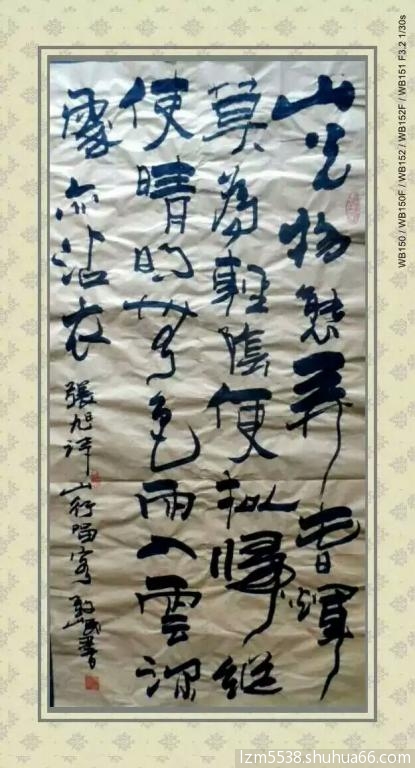 山光物態弄春暉
莫為輕陰便拟歸縱
使晴明無色雨入雲深
處亦沾衣
張旭詩山行留客
書
WB150 / WB150F / WB152 / WB152F / WB151 F3.2 1/30s
lzm5538.shuhua66.com